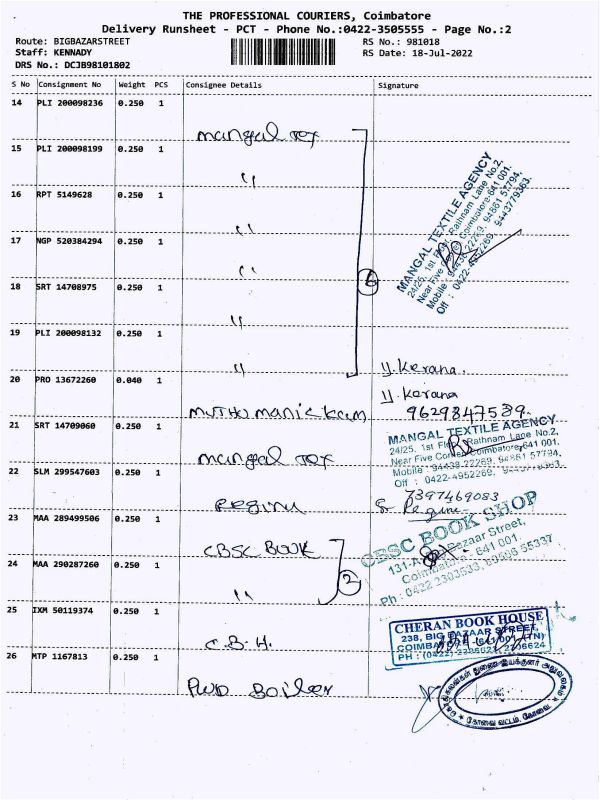 THE PROFESSIONAL COURIERS, Coimbatore
Delivery Runsheet - PCT - Phone No.:0422-3505555 - Page No.:2
Route: BIGBAZARSTREET
RS No.: 981018
Staff: KENNADY
RS Date: 18-Jul-2022
DRS No.: DCJB98101802
S No Consignment No Weight PCS Consignee Details Signature
14 PLI 200098236 0.250 1
Mangal Tex
15 PLI 200098199 0.250 1
"
16 RPT 5149628 0.250 1
"
17 NGP 520384294 0.250 1
"
18 SRT 14708975 0.250 1
"
19 PLI 200098132 0.250 1
"
6
MANGAL TEXTILE AGENCY
24/25, 1st Floor, Rathnam Lane No.2,
Near Five Corner, Coimbatore-641 001.
Mobile : 94438 22269, 94861 57794,
Off : 0422-4952269, 9443779363.
Y. Kerana.
20 PRO 13672260 0.040 1
Y. Kerana
MUTHU manickam 9629847539.
21 SRT 14709060 0.250 1
Mangal Tex
MANGAL TEXTILE AGENCY
24/25, 1st Floor, Rathnam Lane No.2,
Near Five Corner, Coimbatore-641 001.
Mobile : 94438 22269, 94861 57794,
Off : 0422-4952269,
22 SLM 299547603 0.250 1
7397469083
Regina
23 MAA 289499506 0.250 1
CBSC BOOK
24 MAA 290287260 0.250 1
"
2
CBSC BOOK SHOP
131-A, Bazaar Street,
Coimbatore - 641 001.
Ph : 0422 2303533, 55337
25 IXM 50119374 0.250 1
C.B.H.
CHERAN BOOK HOUSE
238, BIG BAZAAR STREET,
COIMBATORE-641 001 (TN)
PH : (0422) 2396624
26 MTP 1167813 0.250 1
PWD Boiler
கொதிகலன்கள் துணை இயக்குனர் அலுவலகம்
கோவை வட்டம், கோவை.